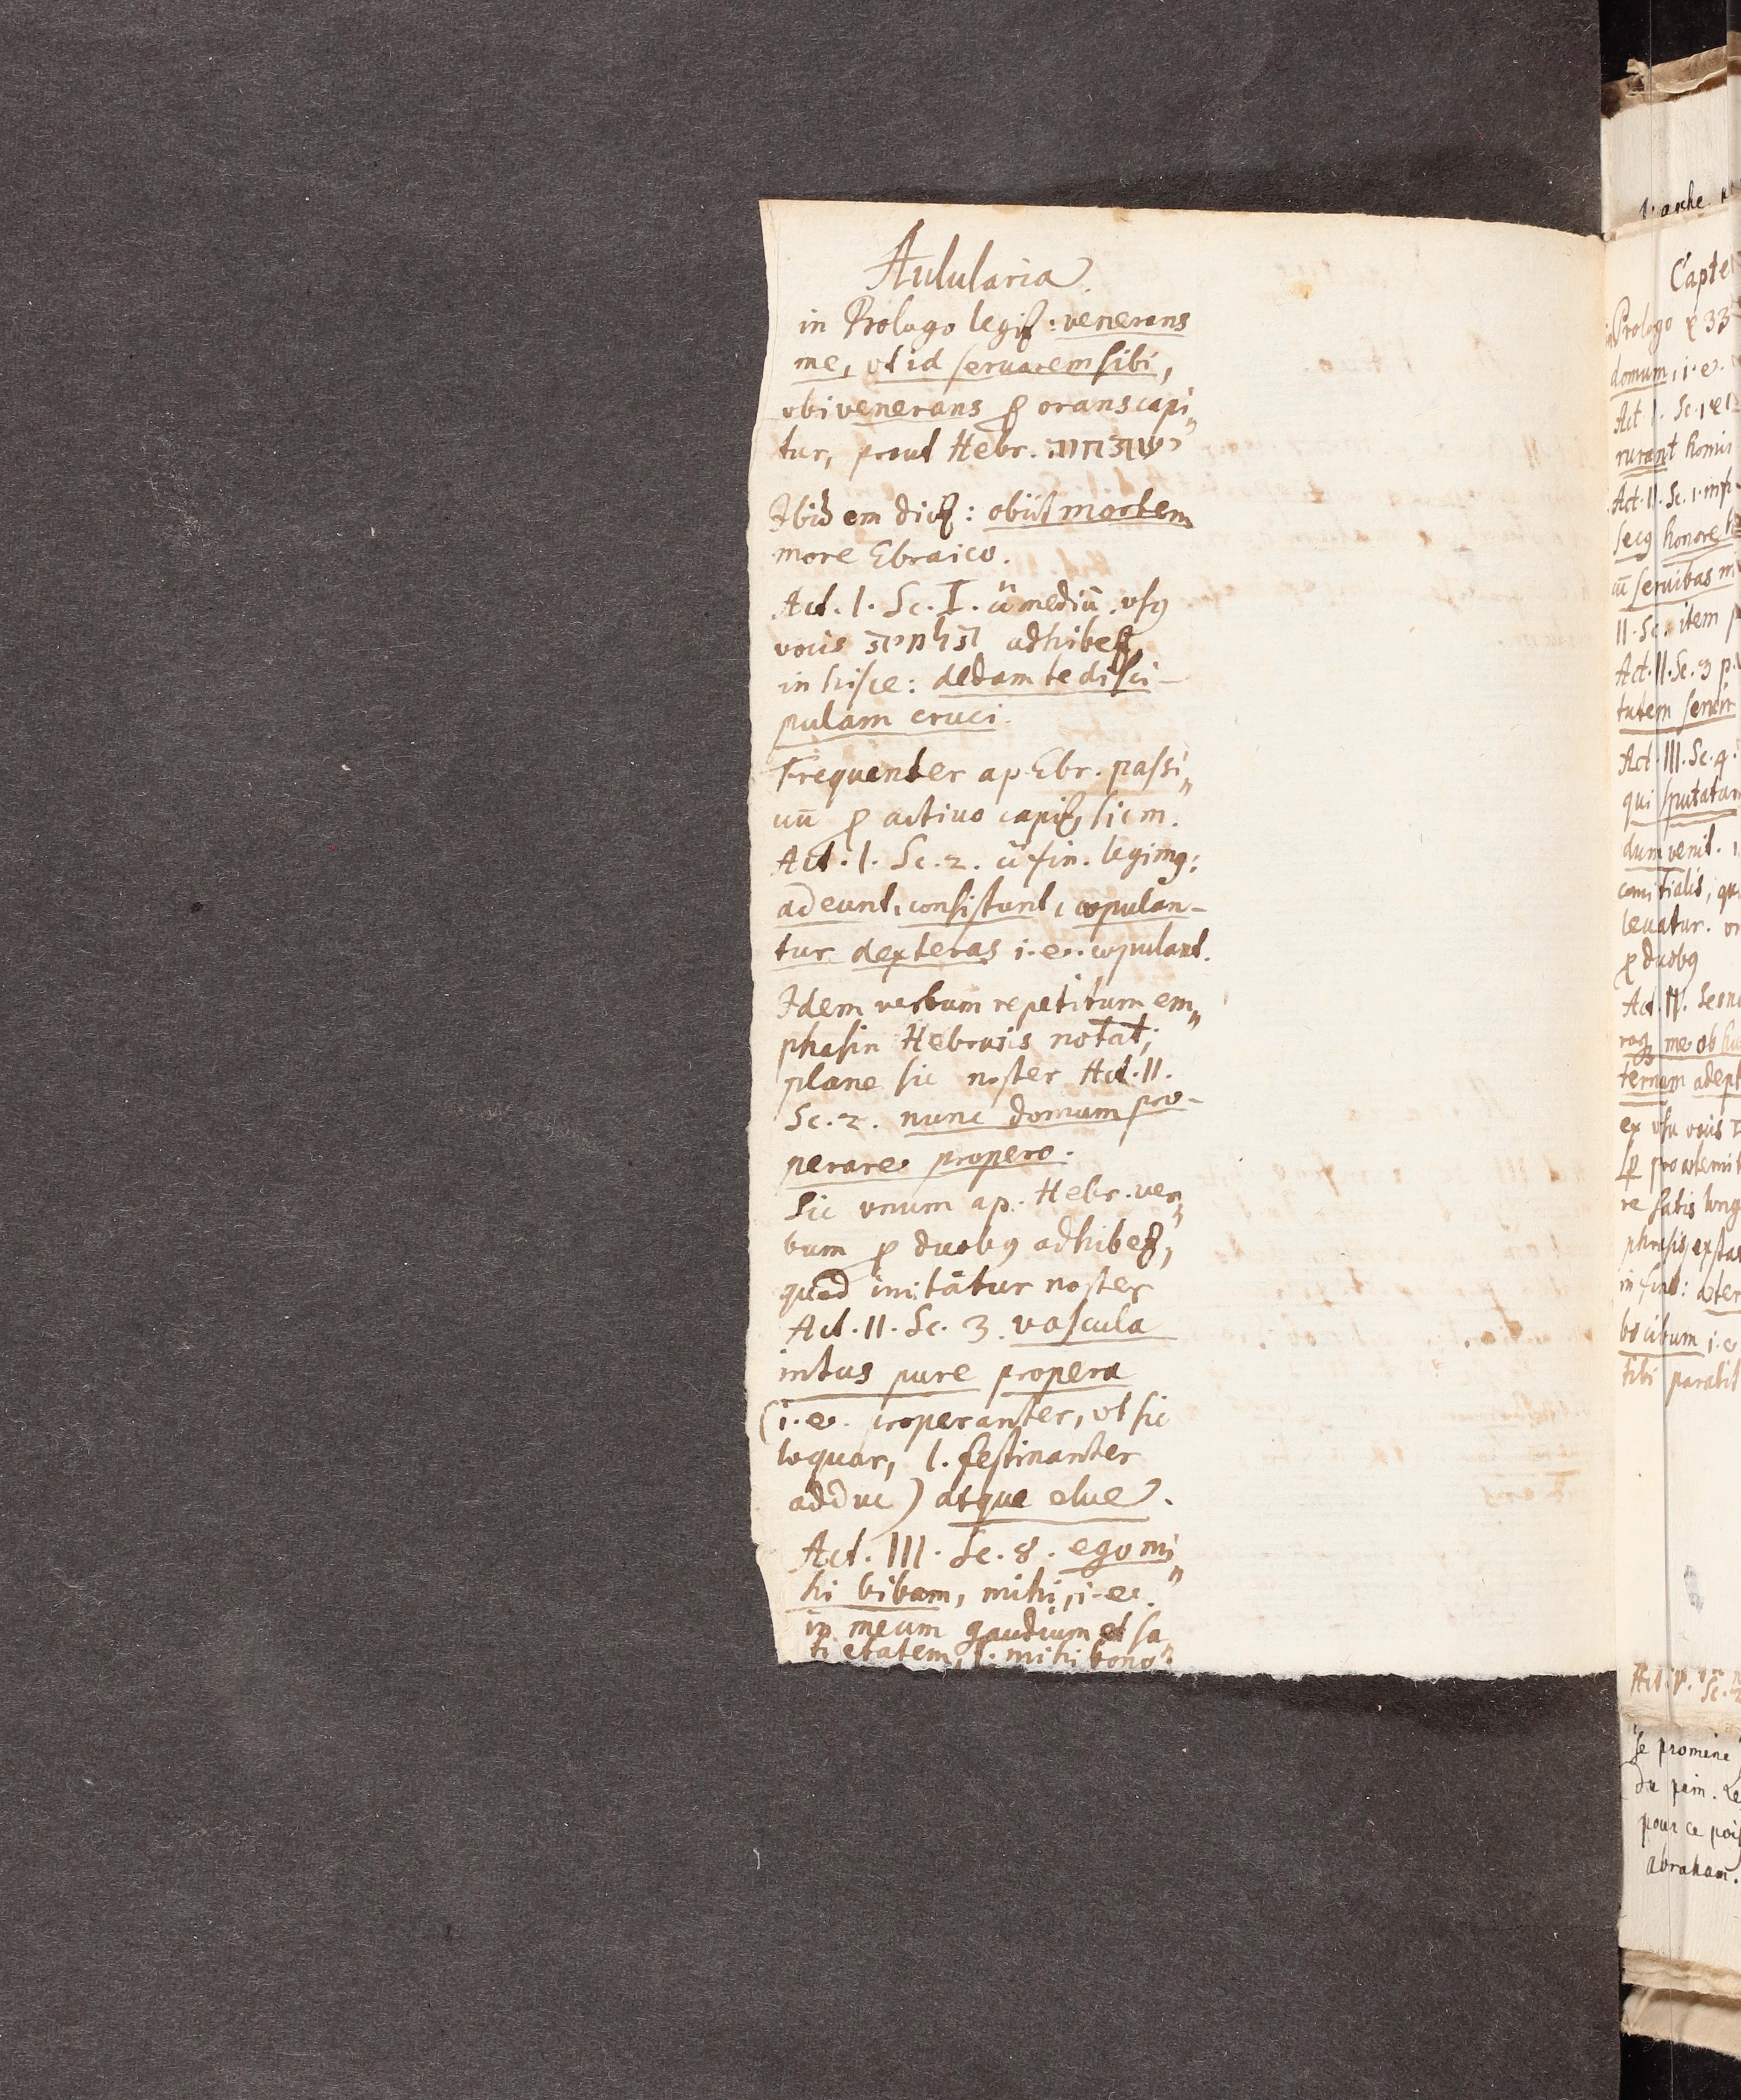 Aulularia
in Prologo legit̃: venerans
me, vt id seruarem sibi,
vbi venerans ꝓ orans capi„
tur, prout Hebr.
Ibidem dicit̃: obiit mortem
more Ebraico.
Act. I. Sc. I. c̃ mediũ vsꝰ
vocis adhibet̃
in hisce: dedam te disci-
pulam cruci.
Frequenter ap. Ebr. passi„
uũ ꝓ actiuo capit̃, sic m.
Act. I. Sc. 2. c̃ fin. legimꝰ:
adeunt, consistunt, copulan-
tur dexteras i. e. copulant.
Idem verbum repetitum em„
phasin Hebræis notat;
plane sic noster Act. II.
Sc. 2. nunc domum pro-
perare propero.
Sic vnum ap. Hebr. ver„
bum ꝓ duobꝰ adhibet̃,
quod imitatur noster
Act. II. Sc. 3. vascula
intus pure propera
(i. e. properanter, vt sic
loquar, l. festinanter
adduc) atque elue.
Act. III. Sc. 8. ego mi„
hi bibam, mihi, i. e.
in meum gaudium et sa„
tietatem, l. mihi bono
Capte
Prologo 33
domum, i. e.
Act. I. Sc.
rurant homi
Act. II. Sc. 1.
honore
seruibas
II. Sc. item
Act. II. Sc. 3 p.
tutem seruir
Act. III. Sc. 4.
qui sputatur
dum venit.
comitialis, qu
leuatur.
ꝓ duobꝰ
Act. IV.
me ob
ternum adept
ex vsu vocis
re satis long
phrasis
in
bo cibum i. e
tibi parabit
se promene
du pain. Le
pour ce
abraham.